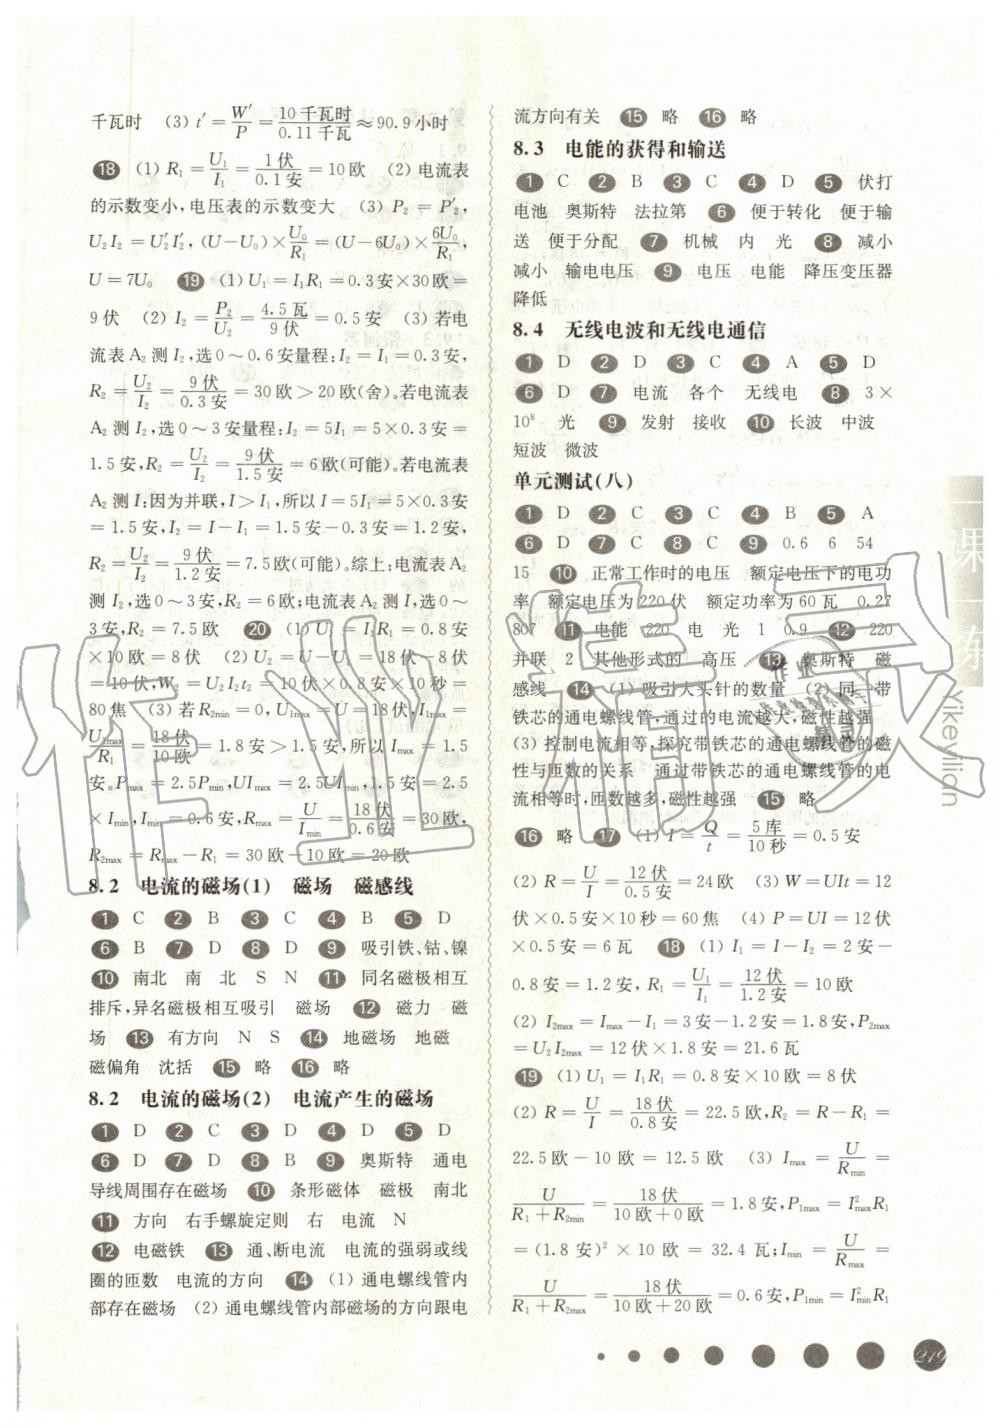 千瓦时 (3) t′=W′/P=10千瓦时/0.11千瓦≈90.9小时
18 (1) R₁=U₁/I₁=1伏/0.1安=10欧 (2) 电流表
的示数变小,电压表的示数变大 (3) P₂=P′₂,
U₂I₂=U′₂I′₂,(U-U₀)×U₀/R₁=(U-6U₀)×6U₀/R₁,
U=7U₀ 19 (1) U₁=I₁R₁=0.3安×30欧=
9伏 (2) I₂=P₂/U₂=4.5瓦/9伏=0.5安 (3) 若电
流表A₂测I₂,选0~0.6安量程:I₂=I₁=0.3安,
R₂=U₂/I₂=9伏/0.3安=30欧>20欧(舍)。若电流表
A₂测I₂,选0~3安量程:I₂=5I₁=5×0.3安=
1.5安,R₂=U₂/I₂=9伏/1.5安=6欧(可能)。若电流表
A₂测I:因为并联,I>I₁,所以I=5I₁=5×0.3安
=1.5安,I₂=I-I₁=1.5安-0.3安=1.2安,
R₂=U₂/I₂=9伏/1.2安=7.5欧(可能)。综上:电流表A₂
测I₂,选0~3安,R₂=6欧;电流表A₂测I,选0~
3安,R₂=7.5欧 20 (1) U₁=I₁R₁=0.8安
×10欧=8伏 (2) U₂=U-U₁=18伏-8伏
=10伏,W₂=U₂I₂t₂=10伏×0.8安×10秒=
80焦 (3) 若R₂min=0,U₁max=U=18伏,I₁max=
U₁max/R₁=18伏/10欧=1.8安>1.5安,所以Imax=1.5
安。Pmax=2.5Pmin,UImax=2.5UImin,1.5安=2.5
×Imin,Imin=0.6安,Rmax=U/Imin=18伏/0.6安=30欧,
R₂max=Rmax-R₁=30欧-10欧=20欧
8.2 电流的磁场(1) 磁场 磁感线
1 C 2 B 3 C 4 B 5 D
6 B 7 D 8 D 9 吸引铁、钴、镍
10 南北 南 北 S N 11 同名磁极相互
排斥,异名磁极相互吸引 磁场 12 磁力 磁
场 13 有方向 N S 14 地磁场 地磁
磁偏角 沈括 15 略 16 略
8.2 电流的磁场(2) 电流产生的磁场
1 D 2 C 3 D 4 D 5 D
6 D 7 D 8 B 9 奥斯特 通电
导线周围存在磁场 10 条形磁体 磁极 南北
11 方向 右手螺旋定则 右 电流 N
12 电磁铁 13 通、断电流 电流的强弱或线
圈的匝数 电流的方向 14 (1) 通电螺线管内
部存在磁场 (2) 通电螺线管内部磁场的方向跟电
流方向有关 15 略 16 略
8.3 电能的获得和输送
1 C 2 B 3 C 4 D 5 伏打
电池 奥斯特 法拉第 6 便于转化 便于输
送 便于分配 7 机械 内 光 8 减小
减小 输电电压 9 电压 电能 降压变压器
降低
8.4 无线电波和无线电通信
1 D 2 D 3 C 4 A 5 D
6 D 7 电流 各个 无线电 8 3×
10⁸ 光 9 发射 接收 10 长波 中波
短波 微波
单元测试(八)
1 D 2 C 3 C 4 B 5 A
6 D 7 C 8 C 9 0.6 6 54
15 10 正常工作时的电压 额定电压下的电功
率 额定电压为220伏 额定功率为60瓦 0.27
807 11 电能 220 电 光 1 0.9 12 220
并联 2 其他形式的 高压 13 奥斯特 磁
感线 14 (1) 吸引大头针的数量 (2) 同一带
铁芯的通电螺线管,通过的电流越大,磁性越强
(3) 控制电流相等,探究带铁芯的通电螺线管的磁
性与匝数的关系 通过带铁芯的通电螺线管的电
流相等时,匝数越多,磁性越强 15 略
16 略 17 (1) I=Q/t=5库/10秒=0.5安
(2) R=U/I=12伏/0.5安=24欧 (3) W=UIt=12
伏×0.5安×10秒=60焦 (4) P=UI=12伏
×0.5安=6瓦 18 (1) I₁=I-I₂=2安-
0.8安=1.2安,R₁=U₁/I₁=12伏/1.2安=10欧
(2) I₂max=Imax-I₁=3安-1.2安=1.8安,P₂max
=U₂I₂max=12伏×1.8安=21.6瓦
19 (1) U₁=I₁R₁=0.8安×10欧=8伏
(2) R=U/I=18伏/0.8安=22.5欧,R₂=R-R₁=
22.5欧-10欧=12.5欧 (3) Imax=U/Rmin=
U/(R₁+R₂min)=18伏/(10欧+0欧)=1.8安,P₁max=I²maxR₁
=(1.8安)²×10欧=32.4瓦;Imin=U/Rmax=
U/(R₁+R₂max)=18伏/(10欧+20欧)=0.6安,P₁min=I²minR₁
一课一练
Yikeyilian
作业精灵
219